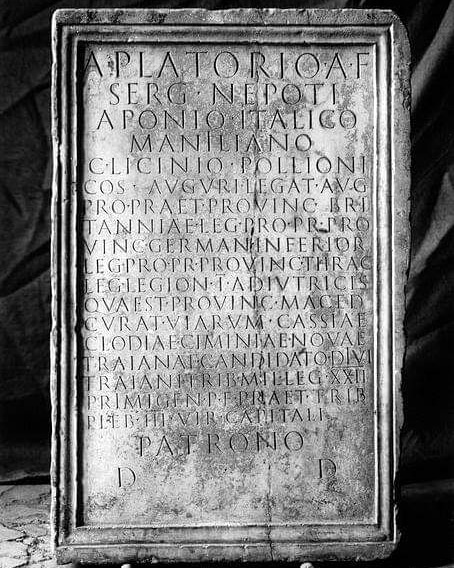 A PLATORIO A F
SERG · NEPOTI
APONIO · ITALICO
MANILIANO
C · LICINIO · POLLIONI
COS · AVGVRI · LEGAT · AVG
PRO · PRAET · PROVINC · BRI
TANNIAE · LEG · PRO · PR · PRO
VINC · GERMAN · INFERIOR
LEG · PRO · PR · PROVINC · THRAC
LEG · LEGION · I · ADIVTRICIS
QVAEST · PROVINC · MACED
CVRAT · VIARVM · CASSIAE
CLODIAE · CIMINIAE · NOVAE
TRAIANAE · CANDIDATO · DIVI
TRAIANI · TRIB · MIL · LEG · XXII
PRIMIGEN · P · F · PRAET · TRIB
PLEB · III · VIR · CAPITALI
PATRONO
D D